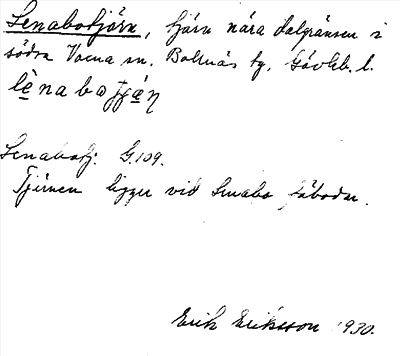 Lenabotjärn, tjärn nära dalgränsen i
södra Voxna sn. Bollnäs tg. Gävleb. l.
lènabotjǽn
Lenabotj: G.109.
Tjärnen ligger vid Lenabo fäbodar.
Erik Eriksson 1930.